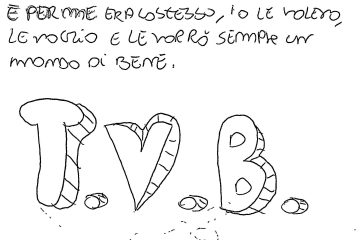 E PER ME ERA LO STESSO, IO LE VOLEVO,
LE VOGLIO E LE VORRÒ SEMPRE UN
MONDO DI BENE.
T.V.B.